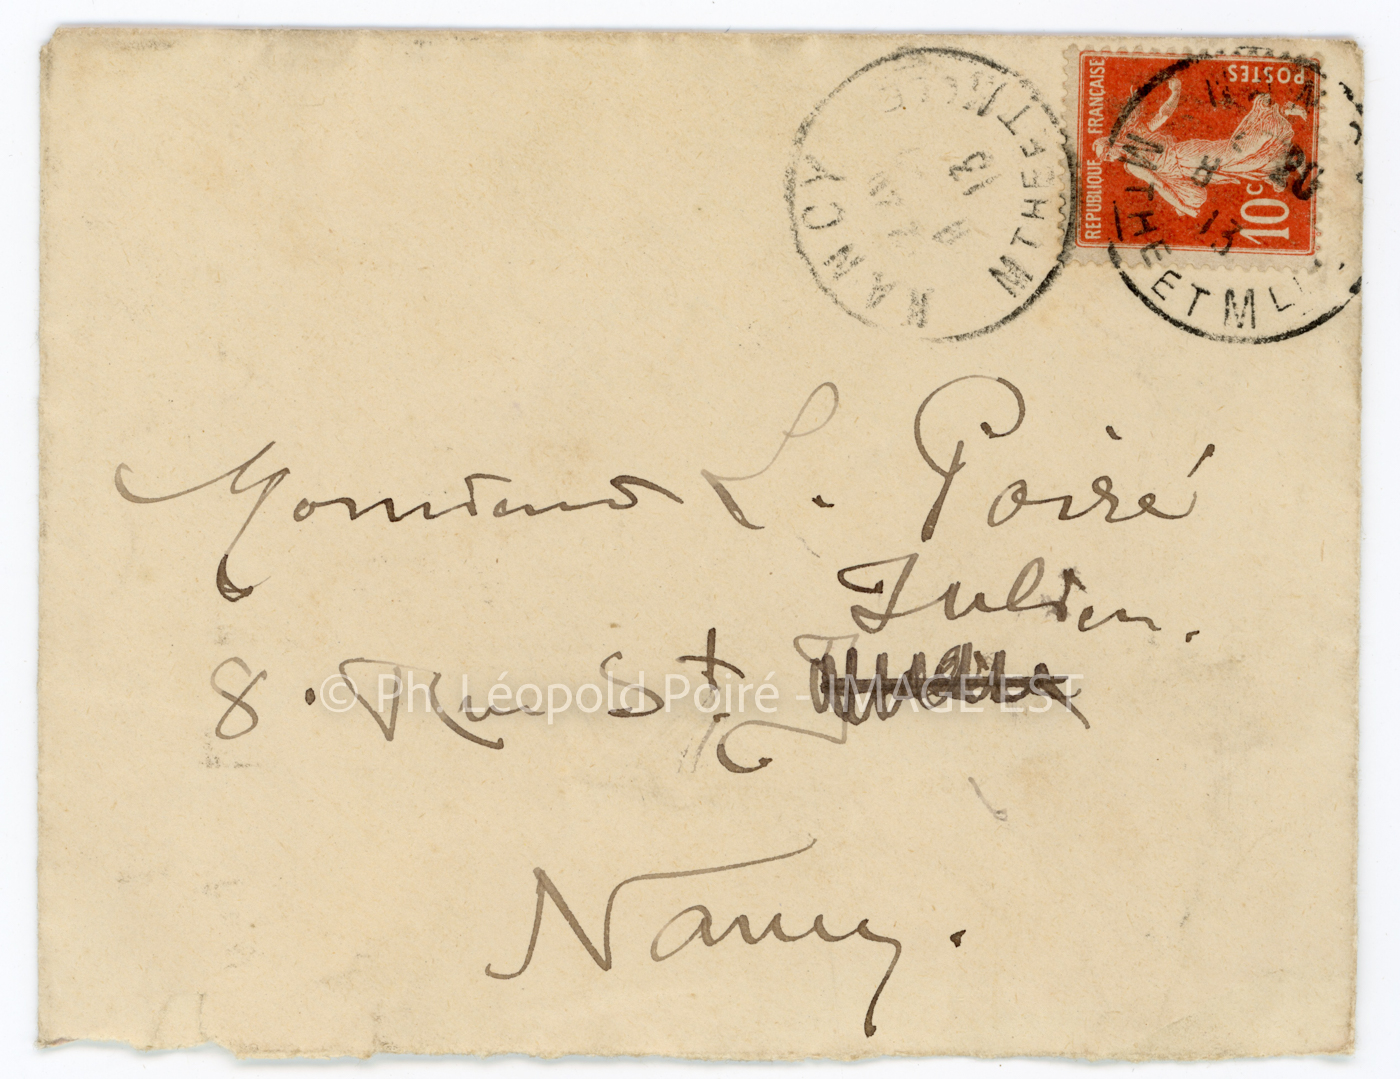 NANCY
MTHE ET MLLE
13
REPUBLIQUE FRANÇAISE
POSTES
10c
8
20
13
MTHE ET MLLE
Monsieur L. Poiré
Julien.
8. Rue St.
Nancy.
© Ph. Léopold Poiré - IMAGE'EST